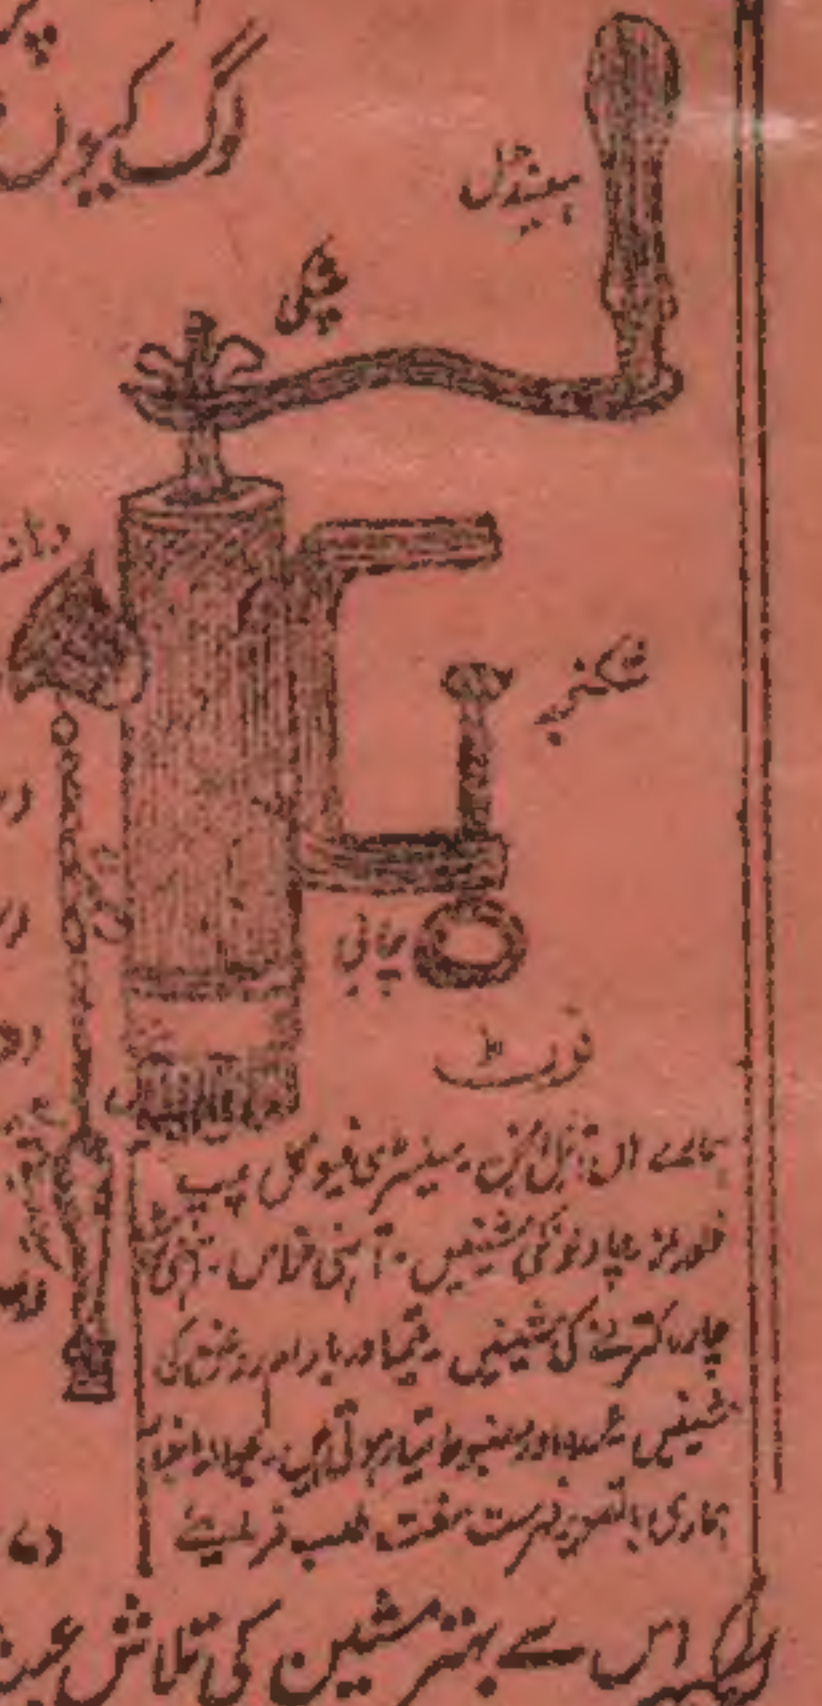 لوگ کیوں
ہینڈل
چٹکی
دہانہ
شکنجہ
چابی
نوٹ
ہمارے ہاں آئل انجن۔ سینٹری فیوگل پمپ
فلور ملز۔ چاولونکی مشینیں۔ آہنی خراس۔ آہنی
چارہ کترنے کی مشینیں۔ قیمہ اور بادام روغن کی
مشینیں عمدہ اور مضبوط تیار ہوتی ہیں۔ بحوالہ اخبار
ہماری باتصویر فہرست مفت طلب فرمایئے
اس سے بہتر مشین کی تلاش عبث